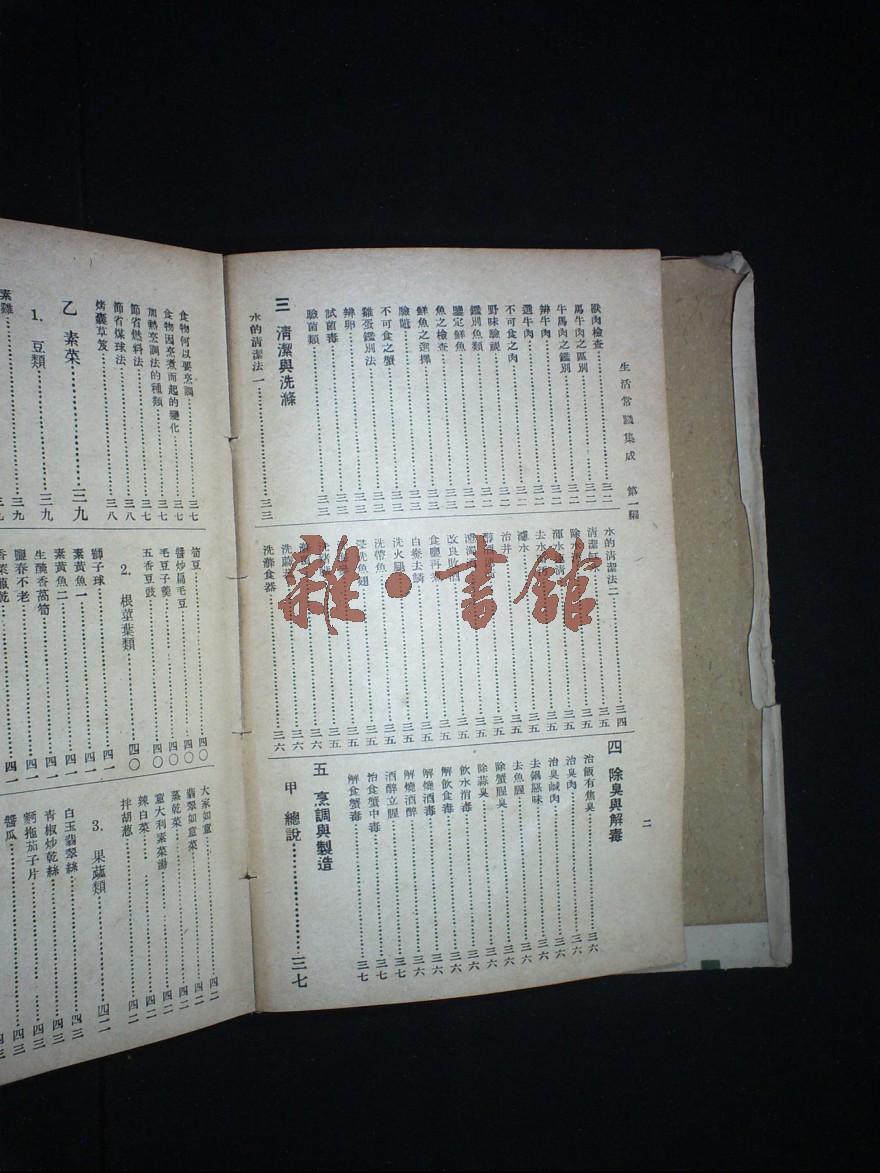 生活常識集成　第一編
二
獸肉檢查…………三二
馬牛肉之區別…………三二
牛馬肉之鑑別…………三二
辨牛肉…………三二
選牛肉…………三二
不可食之肉…………三二
野味驗視…………三二
鑑別魚類…………三二
鑒定鮮魚…………三三
魚之檢查…………三三
鮮魚之選擇…………三三
不可食之蟹…………三三
雞蛋鑑別法…………三三
辨卵…………三三
試菌毒…………三三
驗菌類…………三三
三　清潔與洗滌
水的清潔法一…………三三
水的清潔法二…………三四
濾水…………三五
治井…………三五
改良敗酒…………三五
食鹽再製…………三五
白鯗去鱗…………三五
洗火腿…………三五
洗帶魚…………三五
洗滌食器…………三六
四　除臭與解毒
治飯有焦臭…………三六
治臭肉…………三六
治臭鹹肉…………三六
去魚腥…………三六
除蟹腥臭…………三六
除蒜臭…………三六
飲水消毒…………三六
解飲食毒…………三六
解燒酒毒…………三六
解燒酒醉…………三六
酒醉立醒…………三七
治食蟹中毒…………三七
解食蟹毒…………三七
五　烹調與製造
甲　總說…………三七
食物何以要烹調…………三七
食物因烹煮而起的變化…………三七
加熱烹調法的種類…………三七
節省燃料法…………三七
節省煤球法…………三八
烤囊草笈…………三八
乙　素菜…………三九
1.　豆類…………三九
素雞…………三九
筍豆…………四〇
醬炒扁毛豆…………四〇
毛豆子羹…………四〇
五香豆豉…………四〇
2.　根莖葉類…………四〇
獅子球…………四一
素黃魚一…………四一
素黃魚二…………四一
生醃香萵筍…………四一
鹽春不老…………四一
大家如意…………四二
翡翠如意菜…………四二
蒸乾菜…………四二
意大利素菜湯…………四二
辣白菜…………四二
拌胡葱…………四二
3.　果蔬類…………四二
白玉翡翠絲…………四三
青椒炒乾絲…………四三
麵拖茄子片…………四三
醬瓜…………四三
雜·書館